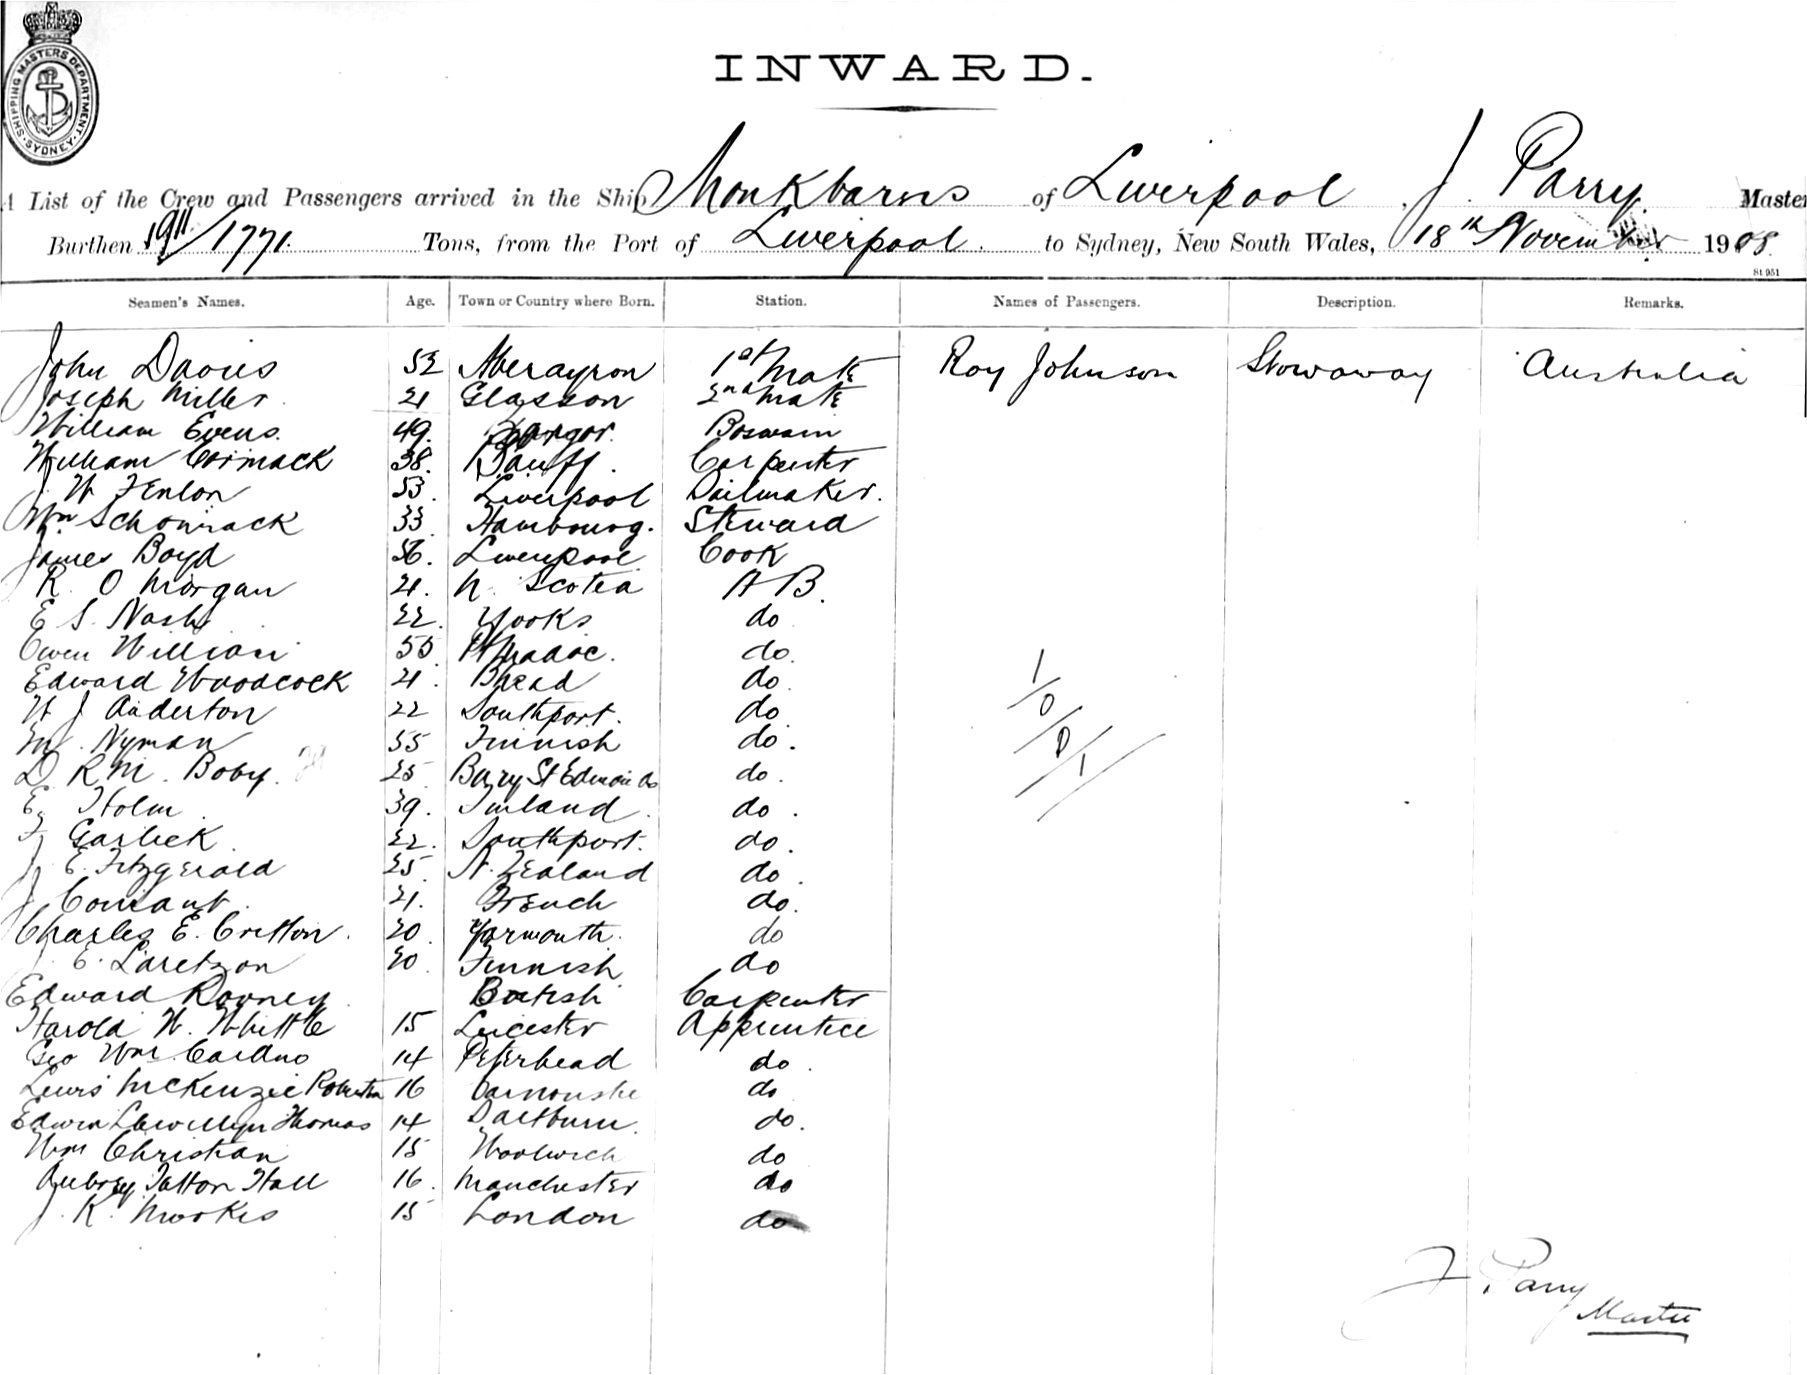 SHIPPING MASTERS DEPARTMENT. SYDNEY
INWARD.
A List of the Crew and Passengers arrived in the Ship Monkbarns of Liverpool, J. Parry. Master
Burthen 1911/1771. Tons, from the Port of Liverpool. to Sydney, New South Wales, 18th November 1908.
St 951
Seamen's Names. Age. Town or Country where Born. Station. Names of Passengers. Description. Remarks.
John Davies 52 Aberayron 1st Mate Roy Johnson Stowaway Australia
Joseph Miller 21 Glasson 2nd Mate
William Evens. 49. Bangor. Boswain
William Cormack 38. Banff. Carpenter
J W Fenlon 53. Liverpool Sailmaker.
Wm Schonrack 33 Hambourg. Steward
James Boyd 56. Liverpool Cook
R. O Morgan 21. N. Scotia A B.
E S. Nash 22. Yooks do
Owen William 55 Ptmadoc. do.
Edward Woodcock 21. Bhead do.
W J Anderton 22 Southport. do
Nyman 55 Finnish do.
D. R M. Boby. 25 Bury St Edmonds do.
E. Holm 39. Finland. do.
F Garlick 22. Southport. do.
J. E. Fitzgerald 25. N. Zealand do.
J 21. French do.
Charles E. Critton. 20. Yarmouth. do
J. E. Laretzon 20. Finnish do
Edward Rooney British Carpenter
Harold W. Whittle 15 Leicester Apprentice
Geo Wm. Cardno 14 Peterhead do.
Lewis McKenzie Robertson 16 do
Edwin Llewellyn Thomas 14 do.
Wm Christian 15 Woolwich do
Aubrey Tatton Hall 16. Manchester do
J. K. 15 London do
1/0/0/1/
J. Parry
Master